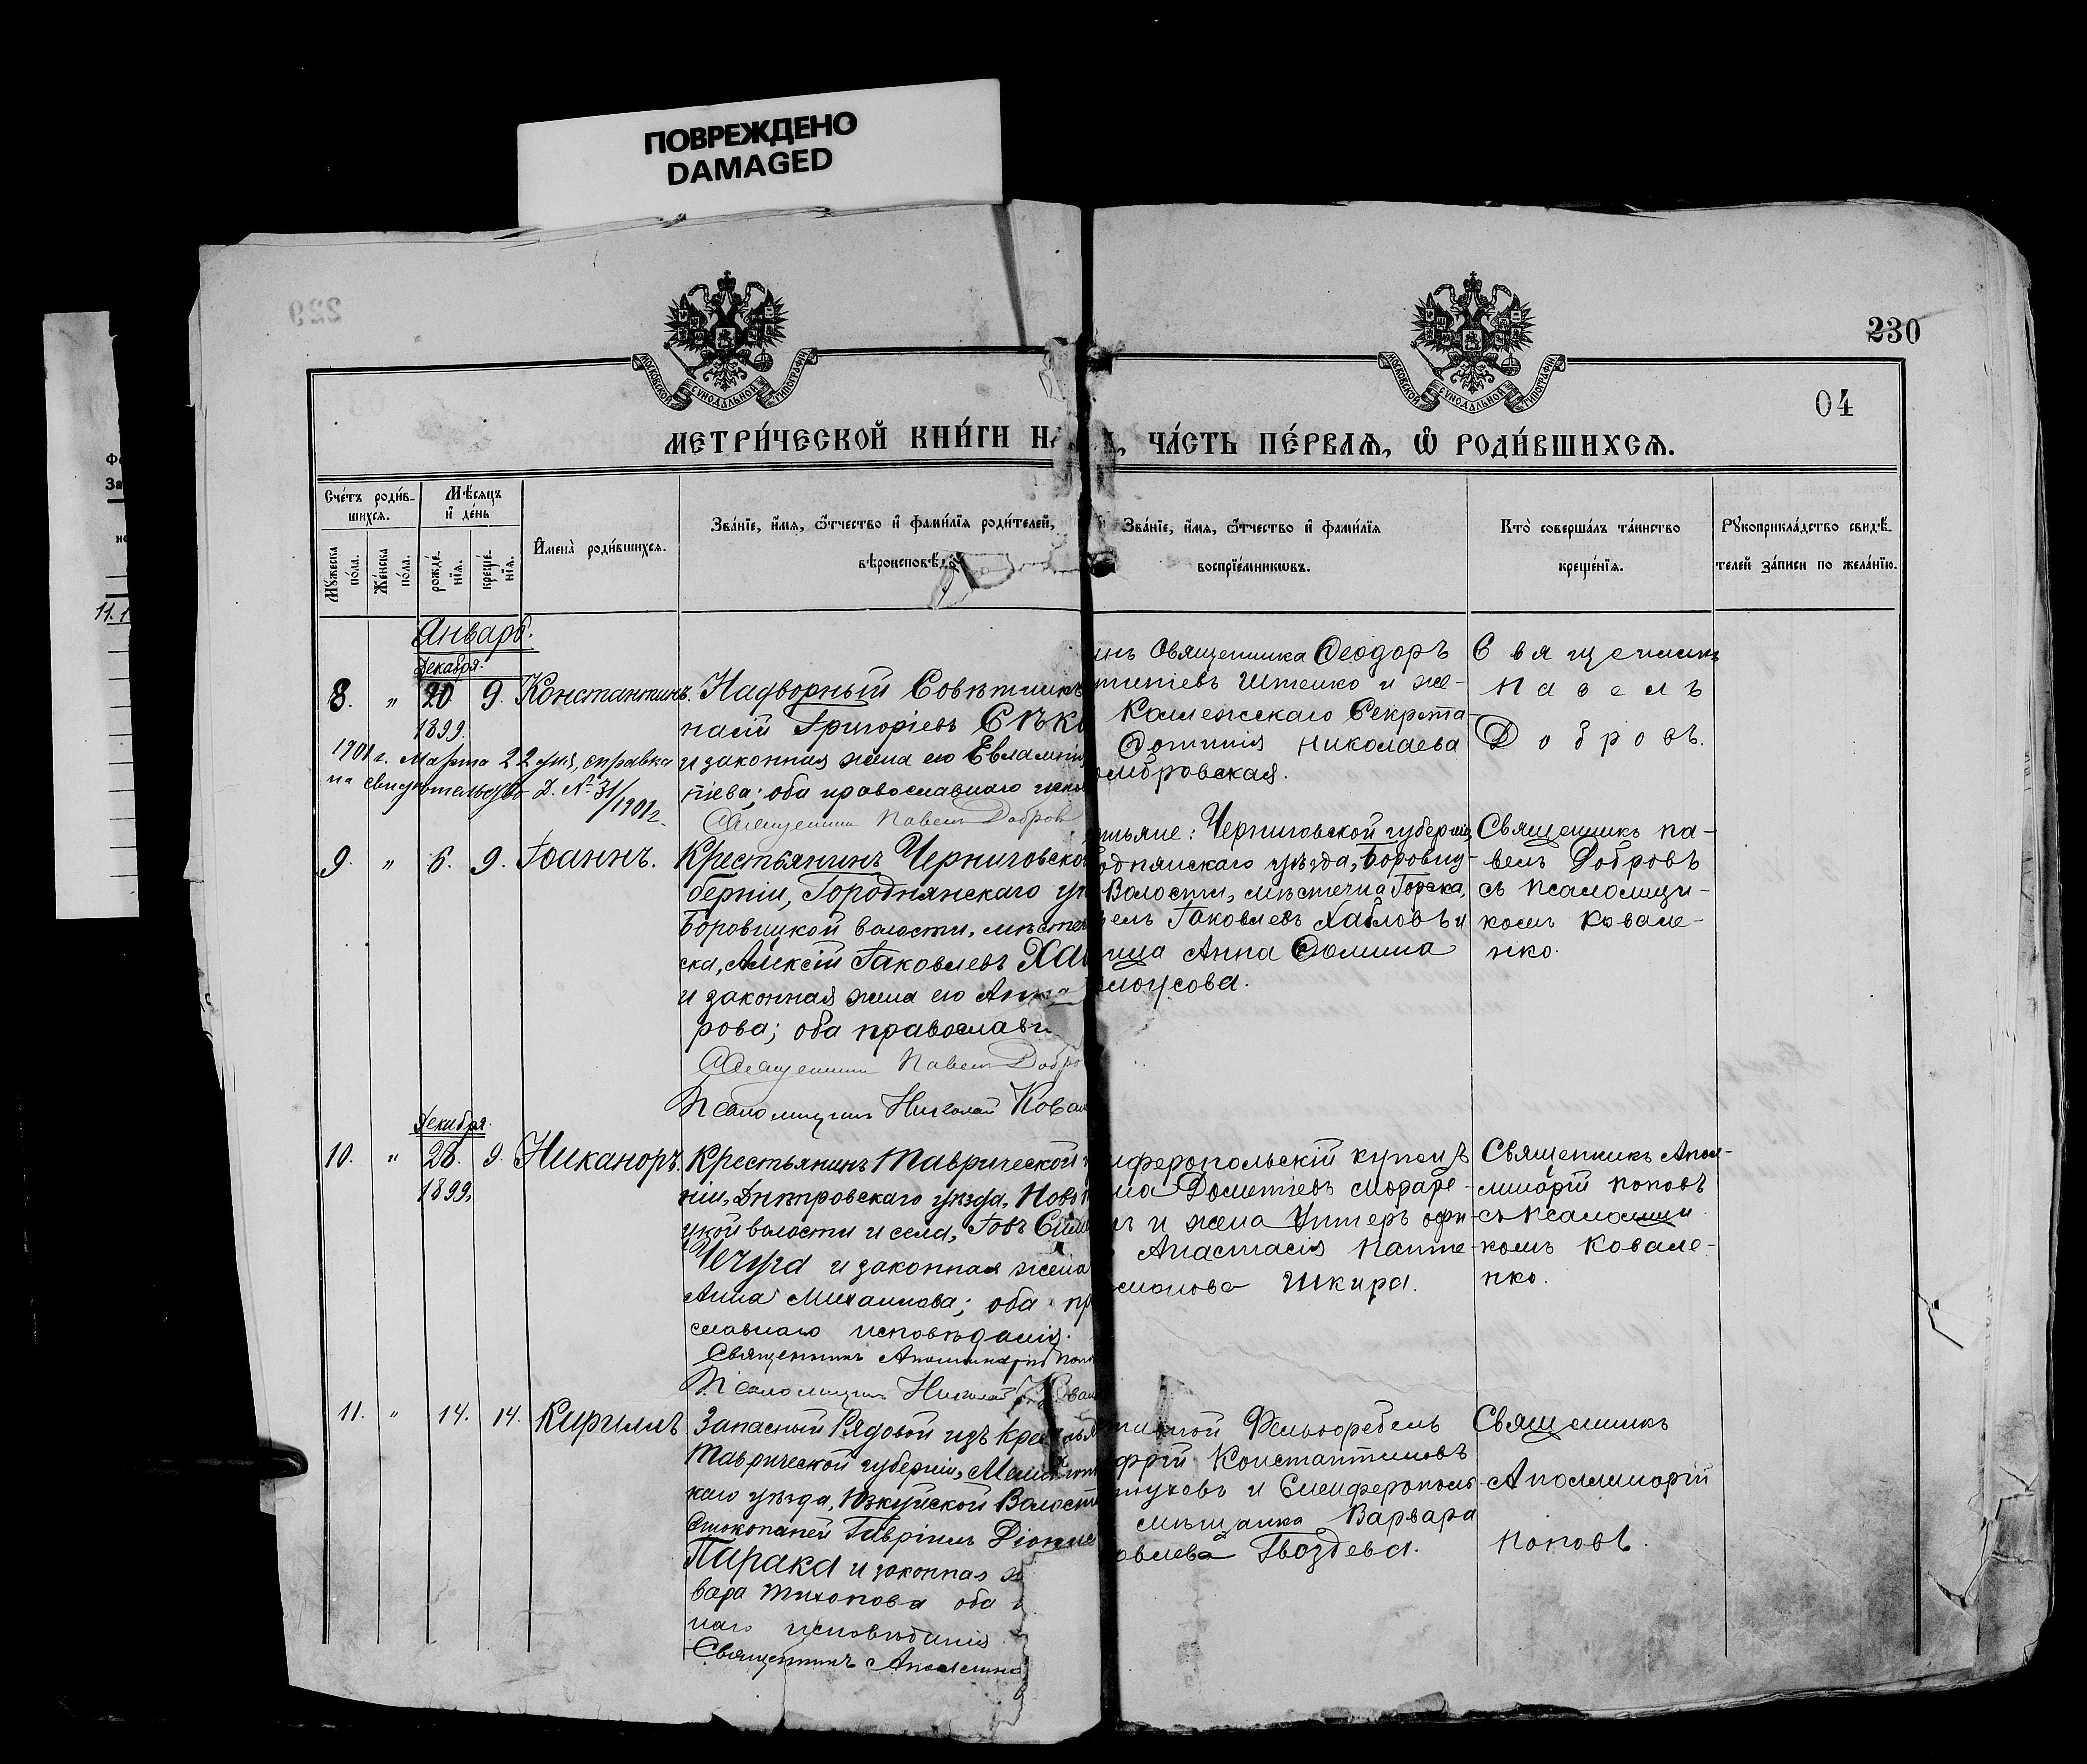 ПОВРЕЖДЕНО
DAMAGED
229
230
04
МОСКОВСКОЙ СѴНОДАЛЬНОЙ ТИПОГРАФІИ
МОСКОВСКОЙ СѴНОДАЛЬНОЙ ТИПОГРАФІИ
МЕТРИ́ЧЕСКОЙ КНИ́ГИ НА
ЧА́СТЬ ПЕ́РВАѦ, Ѽ РОДИ́ВШИХСѦ.
Сче́тъ роди́в-
шихсѧ.
Мꙋ́жеска по́ла.
Же́нска по́ла.
Мѣ́сѧцъ и҆ де́нь
рожде́-нїѧ.
креще́-нїѧ.
И҆мена̀ роди́вшихсѧ.
Зва́нїе, и҆́мѧ, ѻ҆́тчество и҆ фами́лїѧ роди́телей,
вѣроисповѣ́д
Зва́нїе, и҆́мѧ, ѻ҆́тчество и҆ фами́лїѧ
воспрїе́мникѡвъ.
Кто̀ соверша́лъ та́инство
креще́нїѧ.
Рꙋкоприкла́дство свидѣ́-
телей за́писи по жела́нїю.
Январь.
Декабря.
8. " 20. 9. Константинъ. Надворный Совѣтникъ
1899.
насій Григоріевъ Сѣк
и законная жена его Евлампія
тіева; оба православнаго испо
Священникъ Павелъ Добров
1901 г. Марта 22 дня, справка
на свидѣтельство Д. № 31/1901 г.
Священника Ѳеодоръ
титіевъ Штенко и же-
Коллежскаго Секрета
Николаева
омбровская.
Священникъ
Павелъ
Добровъ.
9. " 6. 9. Іоаннъ. Крестьянинъ Черниговско
берніи, Городнянскаго у
Боровицкой волости, мѣсте
ска, Алексій Іаковлевъ Ха
и законная жена его Анна
рова; оба православн
Священникъ Павелъ Добро
Псаломщикъ Николай Ковал
тьяне: Черниговской губерніи,
однянскаго уѣзда, Боровиц-
Волости, мѣстечка Горска,
елъ Іаковлевъ Хабловъ и
ица Анна Ѳомина
лоусова.
Священникъ Па-
велъ Добровъ
съ Псаломщи-
комъ Ковале-
нко.
Декабря.
10. " 28. 9. Никаноръ. Крестьянинъ Таврической
1899.
ніи, Днѣпровскаго уѣзда, Ново
цкой волости и села, Іовъ Сим
Чечура и законная жена
Анна Михаилова; оба пр
славнаго исповѣданія.
Священникъ Аполлинарій Попо
Псаломщикъ Николай Ковал
мферопольскій купецъ
ма Дометіевъ Мораре-
и жена Унтеръ офи-
Анастасія Панте-
монова Шкира.
Священникъ Апол-
линарій Поповъ
съ Псаломщи-
комъ Ковале-
нко.
11. " 14. 14. Кириллъ. Запасный Рядовой изъ Крестья
Таврической губерніи, Мелитоп
каго уѣзда, Юзкуйской Волости
Стокопаней Гавріилъ Діонис
Парака и законная
вара Тихонова оба
наго исповѣданія
Священникъ Аполлина
Фельдфебель
фрій Константиновъ
туховъ и Симферополь-
мѣщанка Варвара
овлева Гвоздева.
Священникъ
Аполлинарій
Поповъ.